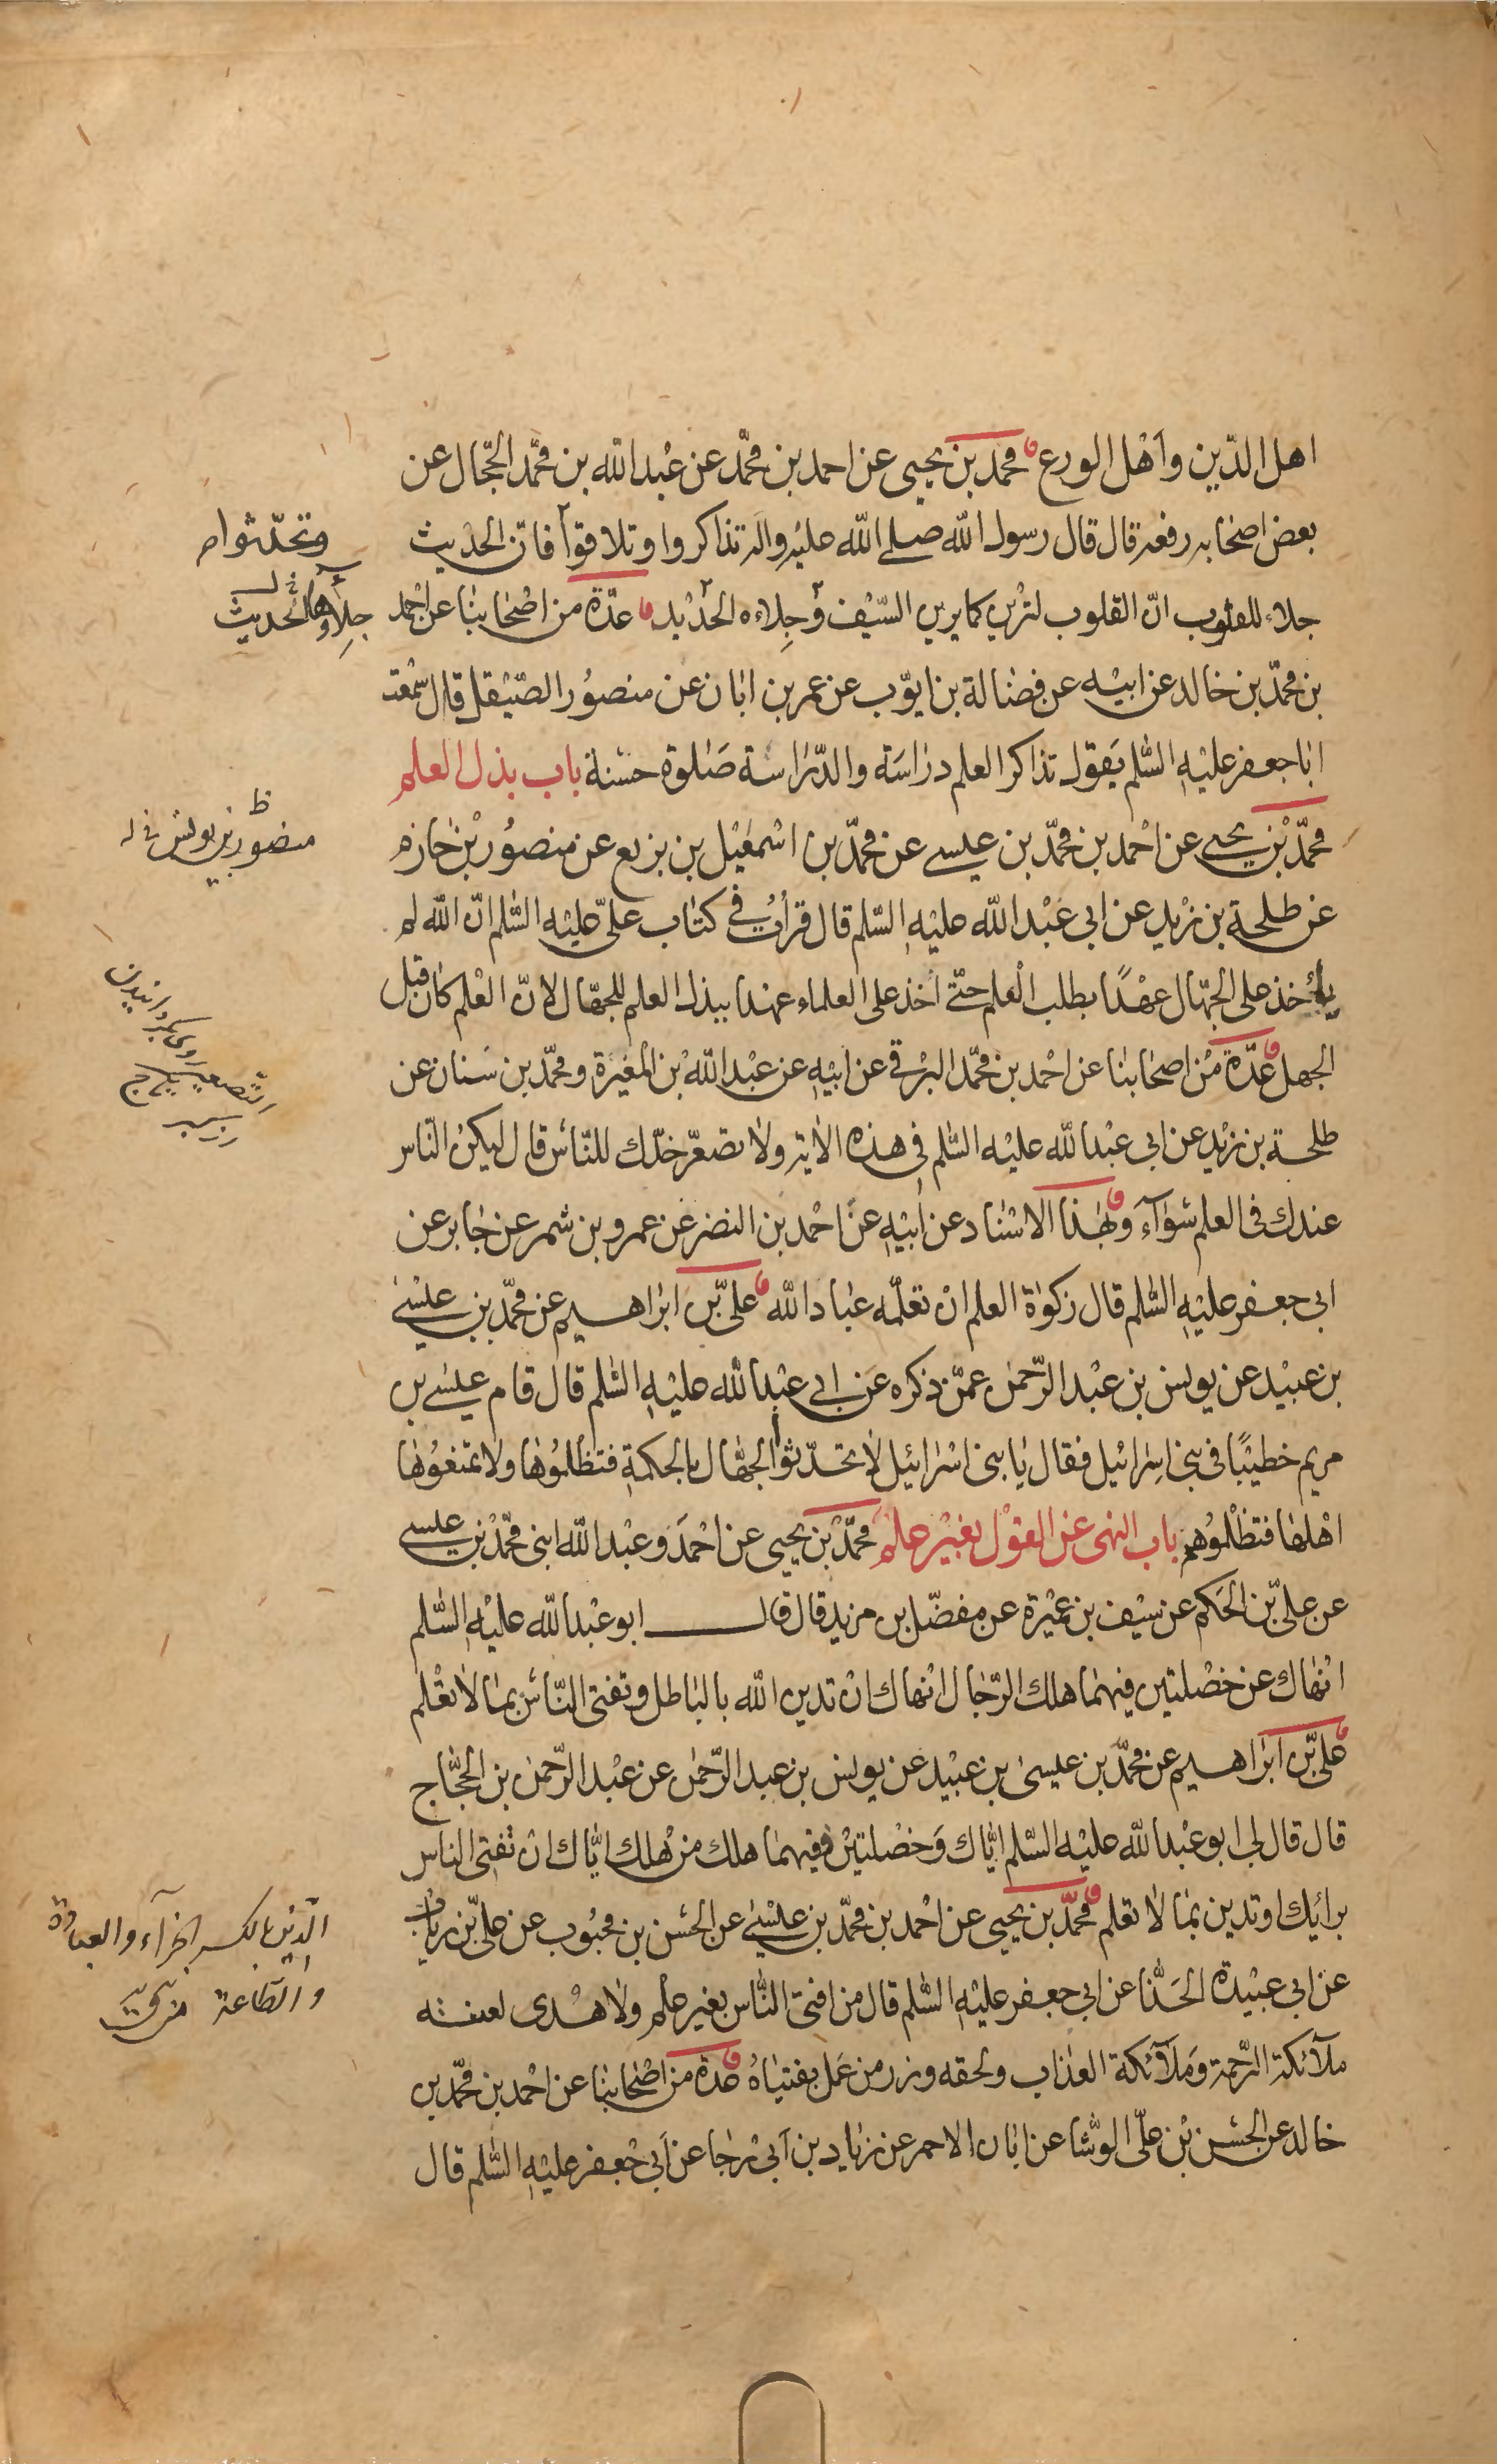 اهل الدّين وأهل الورع محمد بن يحيى عن احمد بن محمّد عن عبد الله بن محمّد الحجّال عن
بعض اصحابه رفعه قال قال رسول الله صلى الله عليه واله تذاكروا وتلاقوا فانّ الحديث
جلاء للقلوب انّ القلوب لترين كما يرين السّيف وجلاءه الحديد عدّة من اصحابنا عن احمد
وتحدّثوا
جلاؤها الحديث
بن محمّد بن خالد عن ابيه عن فضالة بن ايوّب عن عمر بن ابان عن منصور الصّيقل قال سمعت
ابا جعفر عليه السّلم يقول تذاكر العلم دراسة والدّراسة صلوة حسنة باب بذل العلم
محمّد بن يحيى عن احمد بن محمّد بن عيسى عن محمّد بن اسمعيل بن بزيع عن منصور بن حازم
منصور بن يونس
عن طلحة بن زيد عن ابى عبد الله عليه السّلم قال قرأت فى كتاب علىّ عليه السّلم انّ الله لم
يأخذ على الجهّال عهدًا بطلب العلم حتّى اخذ على العلماء عهدا ببذل العلم للجهّال لانّ العلم كان قبل
الجهل عدّة من اصحابنا عن احمد بن محمّد البرقى عن ابيه عن عبد الله بن المغيرة ومحمّد بن سنان عن
طلحة بن زيد عن ابى عبد الله عليه السّلم فى هذه الاية ولا تصعّر خدّك للنّاس قال ليكن النّاس
عندك فى العلم سواء وبهذا الاسناد عن ابيه عن احمد بن النضر عن عمرو بن شمر عن جابر عن
ابى جعفر عليه السّلم قال زكوة العلم ان تعلّمه عباد الله علىّ بن ابراهيم عن محمّد بن عيسى
بن عبيد عن يونس بن عبد الرّحمن عمّن ذكره عن ابى عبد الله عليه السّلم قال قام عيسى بن
مريم خطيبًا فى بنى اسرائيل فقال يا بنى اسرائيل لا تحدّثوا الجهّال بالحكمة فتظلموها ولا تمنعوها
اهلها فتظلموهم باب النهى عن القول بغير علم محمّد بن يحيى عن احمد وعبد الله ابنى محمّد بن عيسى
عن علىّ بن الحكم عن سيف بن عميرة عن مفضّل بن مزيد قال قال ابو عبد الله عليه السّلم
انهاك عن خصلتين فيهما هلك الرّجال انهاك ان تدين الله بالباطل وتفتى النّاس بما لا تعلم
علىّ بن ابراهيم عن محمّد بن عيسى بن عبيد عن يونس بن عبد الرّحمن عن عبد الرّحمن بن الحجّاج
قال قال لى ابو عبد الله عليه السّلم ايّاك وخصلتين ففيهما هلك من هلك ايّاك ان تفتى الناس
برائيك او تدين بما لا تعلم محمّد بن يحيى عن احمد بن محمّد بن عيسى عن الحسن بن محبوب عن علىّ بن رياب
الدّين بالكسر الجزآء والعبادة
والطّاعة
عن ابى عبيدة الحذّا عن ابى جعفر عليه السّلم قال من افتى النّاس بغير علم ولا هدى لعنته
ملآئكة الرّحمة وملآئكة العذاب ولحقه وزر من عمل بفتياه عدّة من اصحابنا عن احمد بن محمّد بن
خالد عن الحسن بن علىّ الوشّا عن ابان الاحمر عن زياد بن ابى رجا عن ابى جعفر عليه السّلم قال